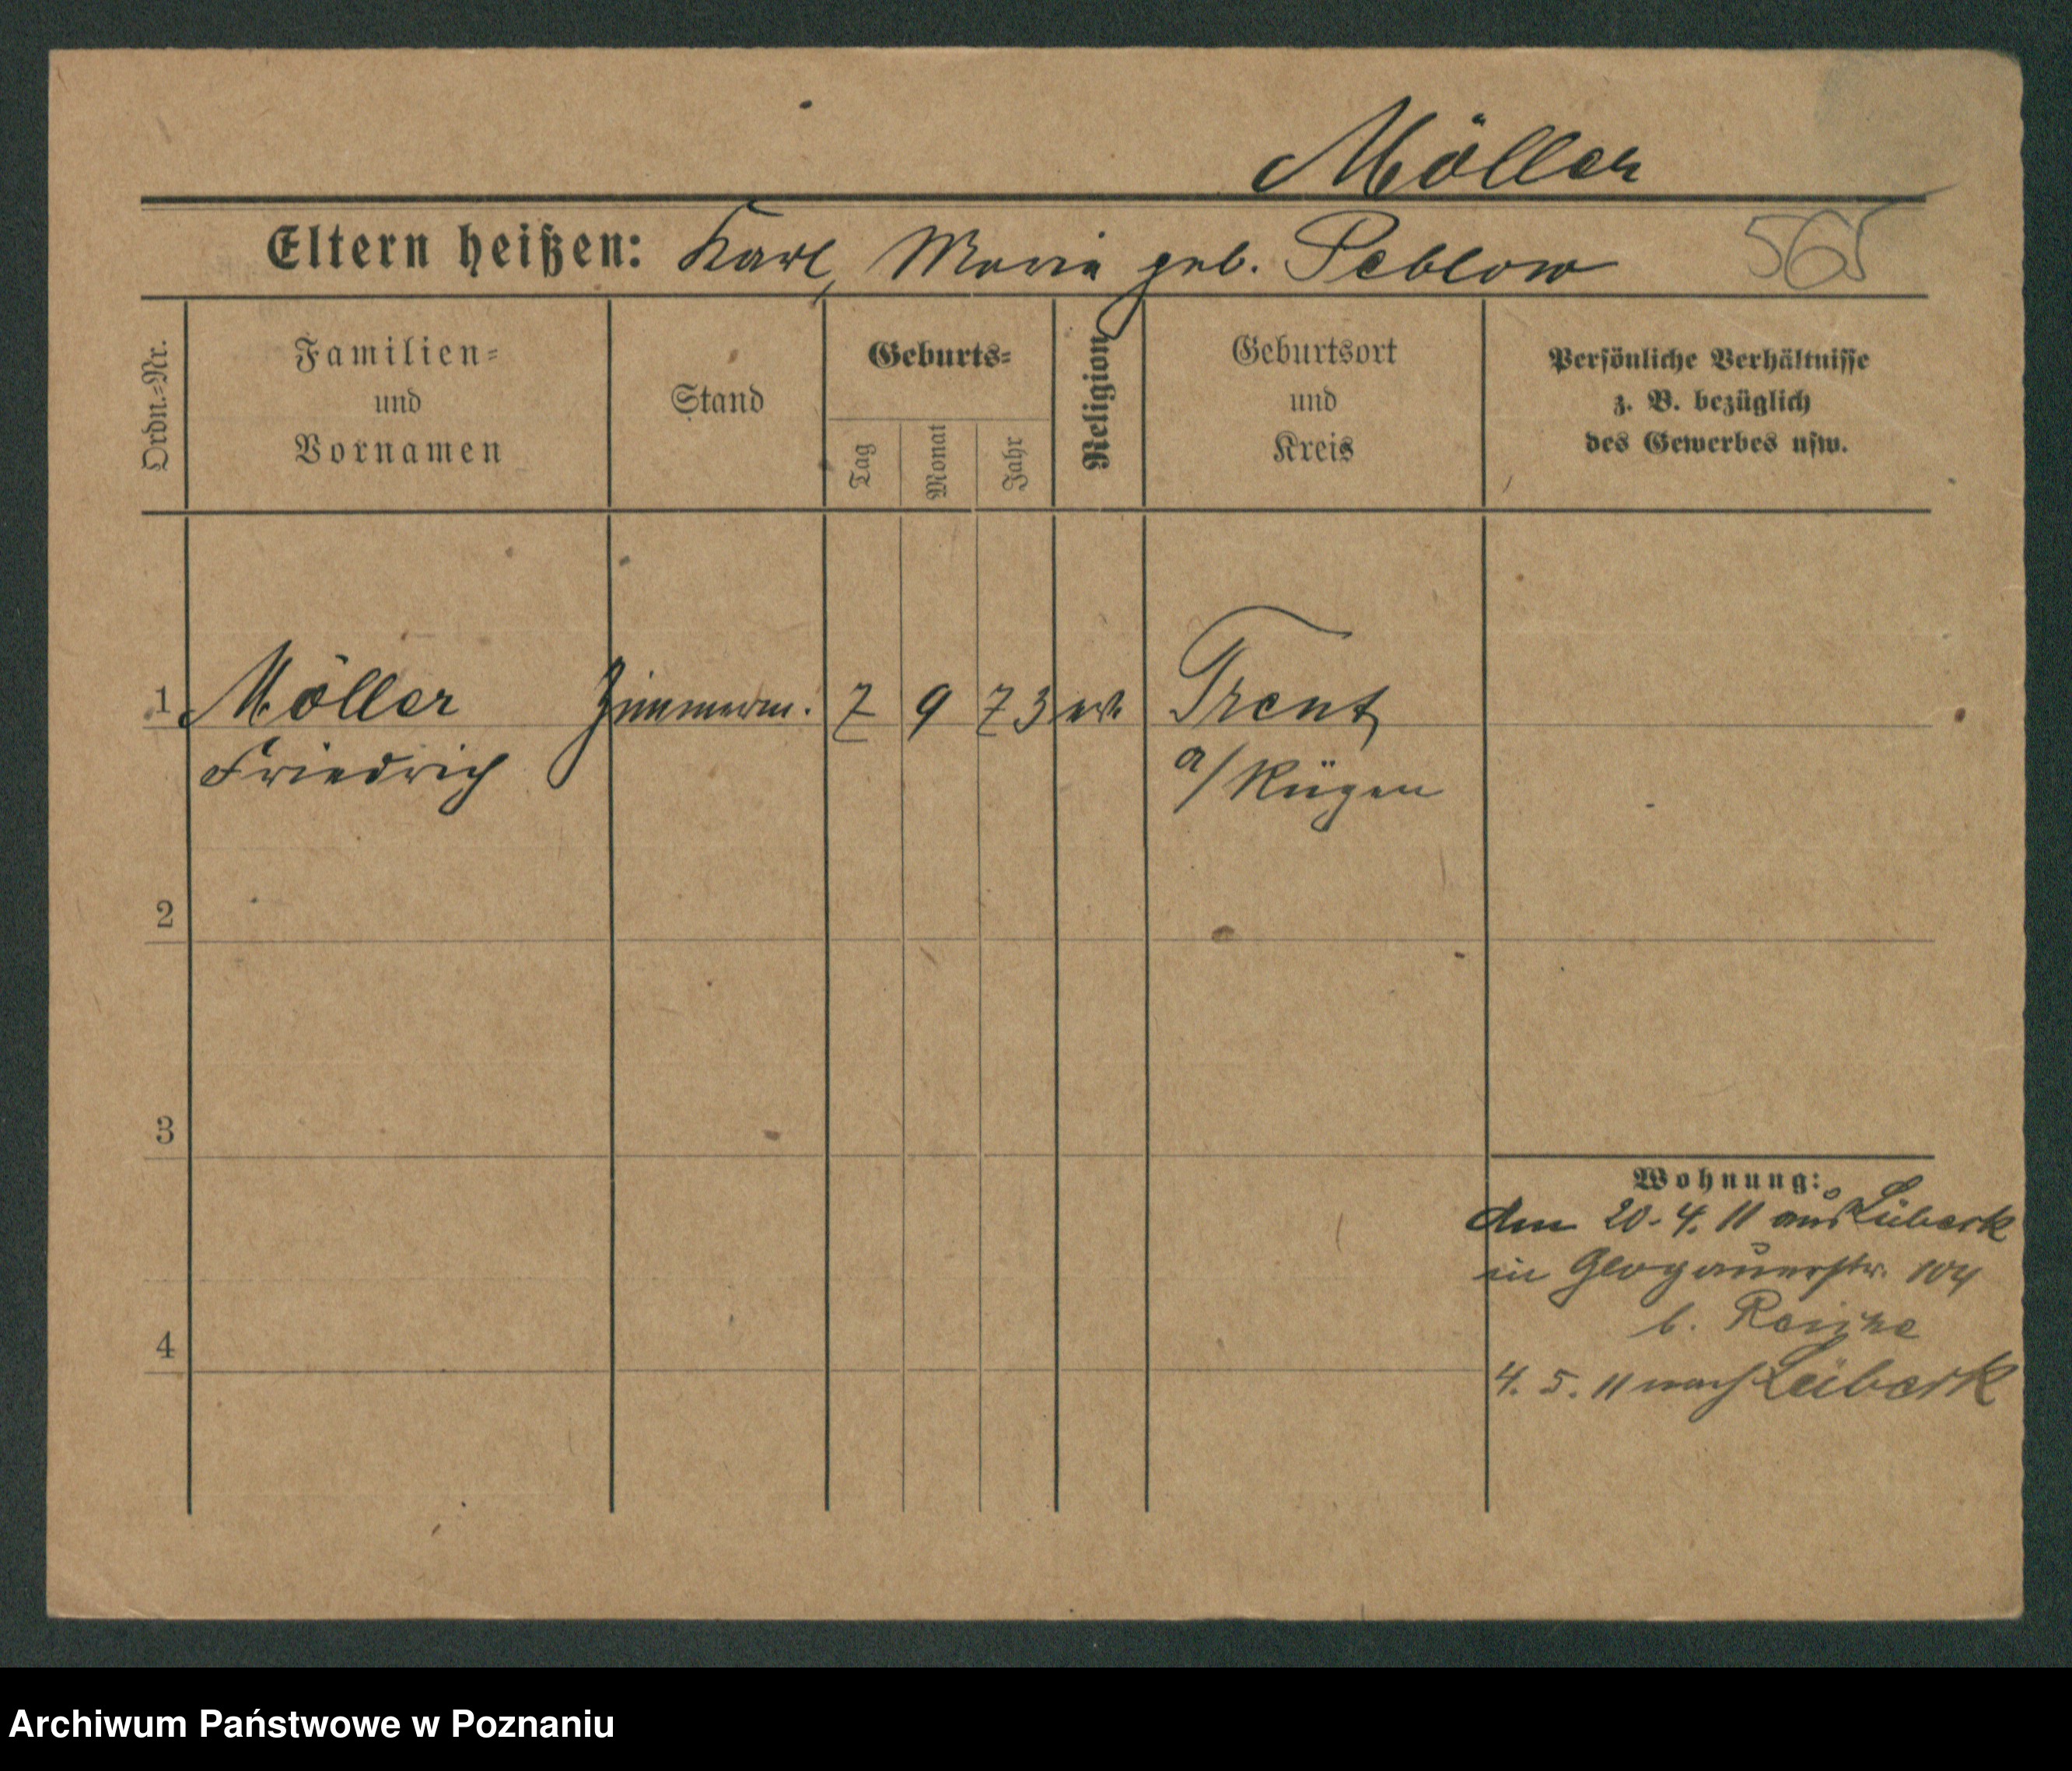 Möller
Eltern heißen: Karl, Maria geb. Peblow 565
Ordn.-Nr.
Familien-
und
Vornamen
Stand
Geburts-
Tag
Monat
Jahr
Religion
Geburtsort
und
Kreis
Persönliche Verhältnisse
z. B. bezüglich
des Gewerbes usw.
1 Möller Zimmerm. 7 9 73 ev. Trent
Friedrich a/Rügen
2
3
4
Wohnung:
den 20. 4. 11 aus Lübeck
in Glogauerstr. 104
b.
4. 5. 11 nach Lübeck
Archiwum Państwowe w Poznaniu